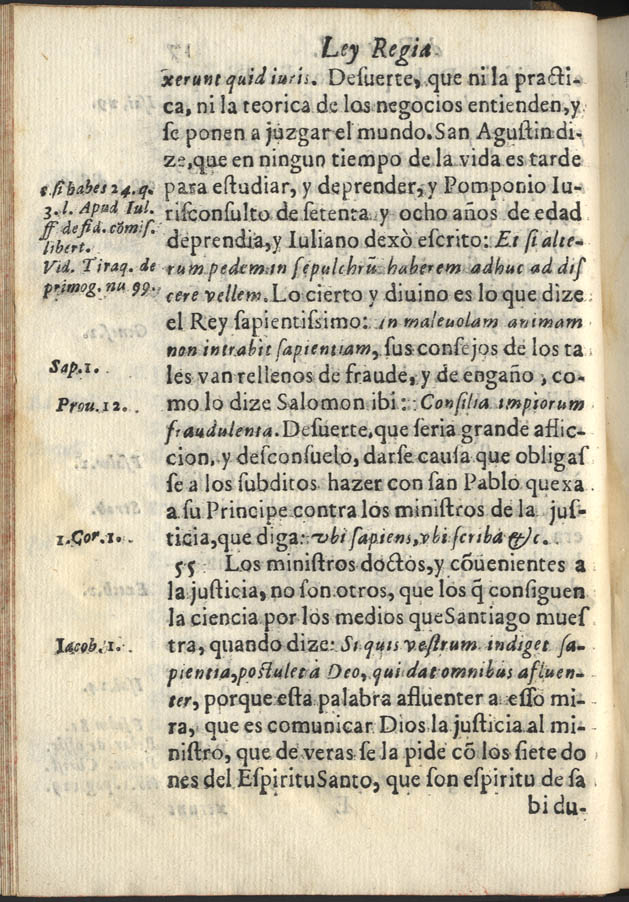 Ley Regia
xerunt quid iuris. Desuerte, que ni la practi-
ca, ni la teorica de los negocios entienden, y
se ponen a juzgar el mundo. San Agustin di-
ze, que en ningun tiempo de la vida es tarde
para estudiar, y deprender, y Pomponio Iu-
risconsulto de setenta y ocho años de edad
deprendia, y Iuliano dexò escrito: Et si alte-
rum pedem in sepulchrũ haberem adhuc ad dis
cere vellem. Lo cierto y diuino es lo que dize
el Rey sapientissimo: in maleuolam animam
non intrabit sapientiam, sus consejos de los ta
les van rellenos de fraude, y de engaño, co-
mo lo dize Salomon ibi: Consilia impiorum
fraudulenta. Desuerte, que seria grande aflic-
cion, y desconsuelo, darse causa que obligas
se a los subditos hazer con san Pablo quexa
a su Principe contra los ministros de la jus-
ticia, que diga: vbi sapiens, vbi scriba &c.
55 Los ministros doctos, y cõuenientes a
la justicia, no son otros, que los q̃ consiguen
la ciencia por los medios que Santiago mues
tra, quando dize: Si quis vestrum indiget sa-
pientia, postulet à Deo, qui dat omnibus afluen-
ter, porque esta palabra afluenter a esso mi-
ra, que es comunicar Dios la justicia al mi-
nistro, que de veras se la pide cõ los siete do
nes del Espiritu Santo, que son espiritu de sa
bi du-
c. si habes 24. q.
3. l. Apud Iul.
ff de fid. cõmis.
libert.
Vid. Tiraq. de
primog. nu 99.
Sap. 1.
Prou. 12.
1. Cor. 1.
Iacob. 1.